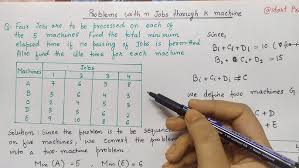 Problems with n Jobs through k machine
Q: Four Jobs are to be processed on each of
the 5 machines. Find the total minimum
elapsed time if no passing of Jobs is permitted
Also find the idle time for each machine
Since,
B1 + C1 + D1 = 10
B3 + C3 = 15
B1 + C1 + D1 = C
we define two machines G
Machines Jobs
1 2 3 4
A 7 6 5 8
B 5 6 4 3
C 2 4 5 3
D 3 5 6 2
E 9 10 8 6
Solution: Since the problem is to be sequenced
on five machines, we convert the problem
into a two-machine problem
Min (A) = 5 Min (E) = 6